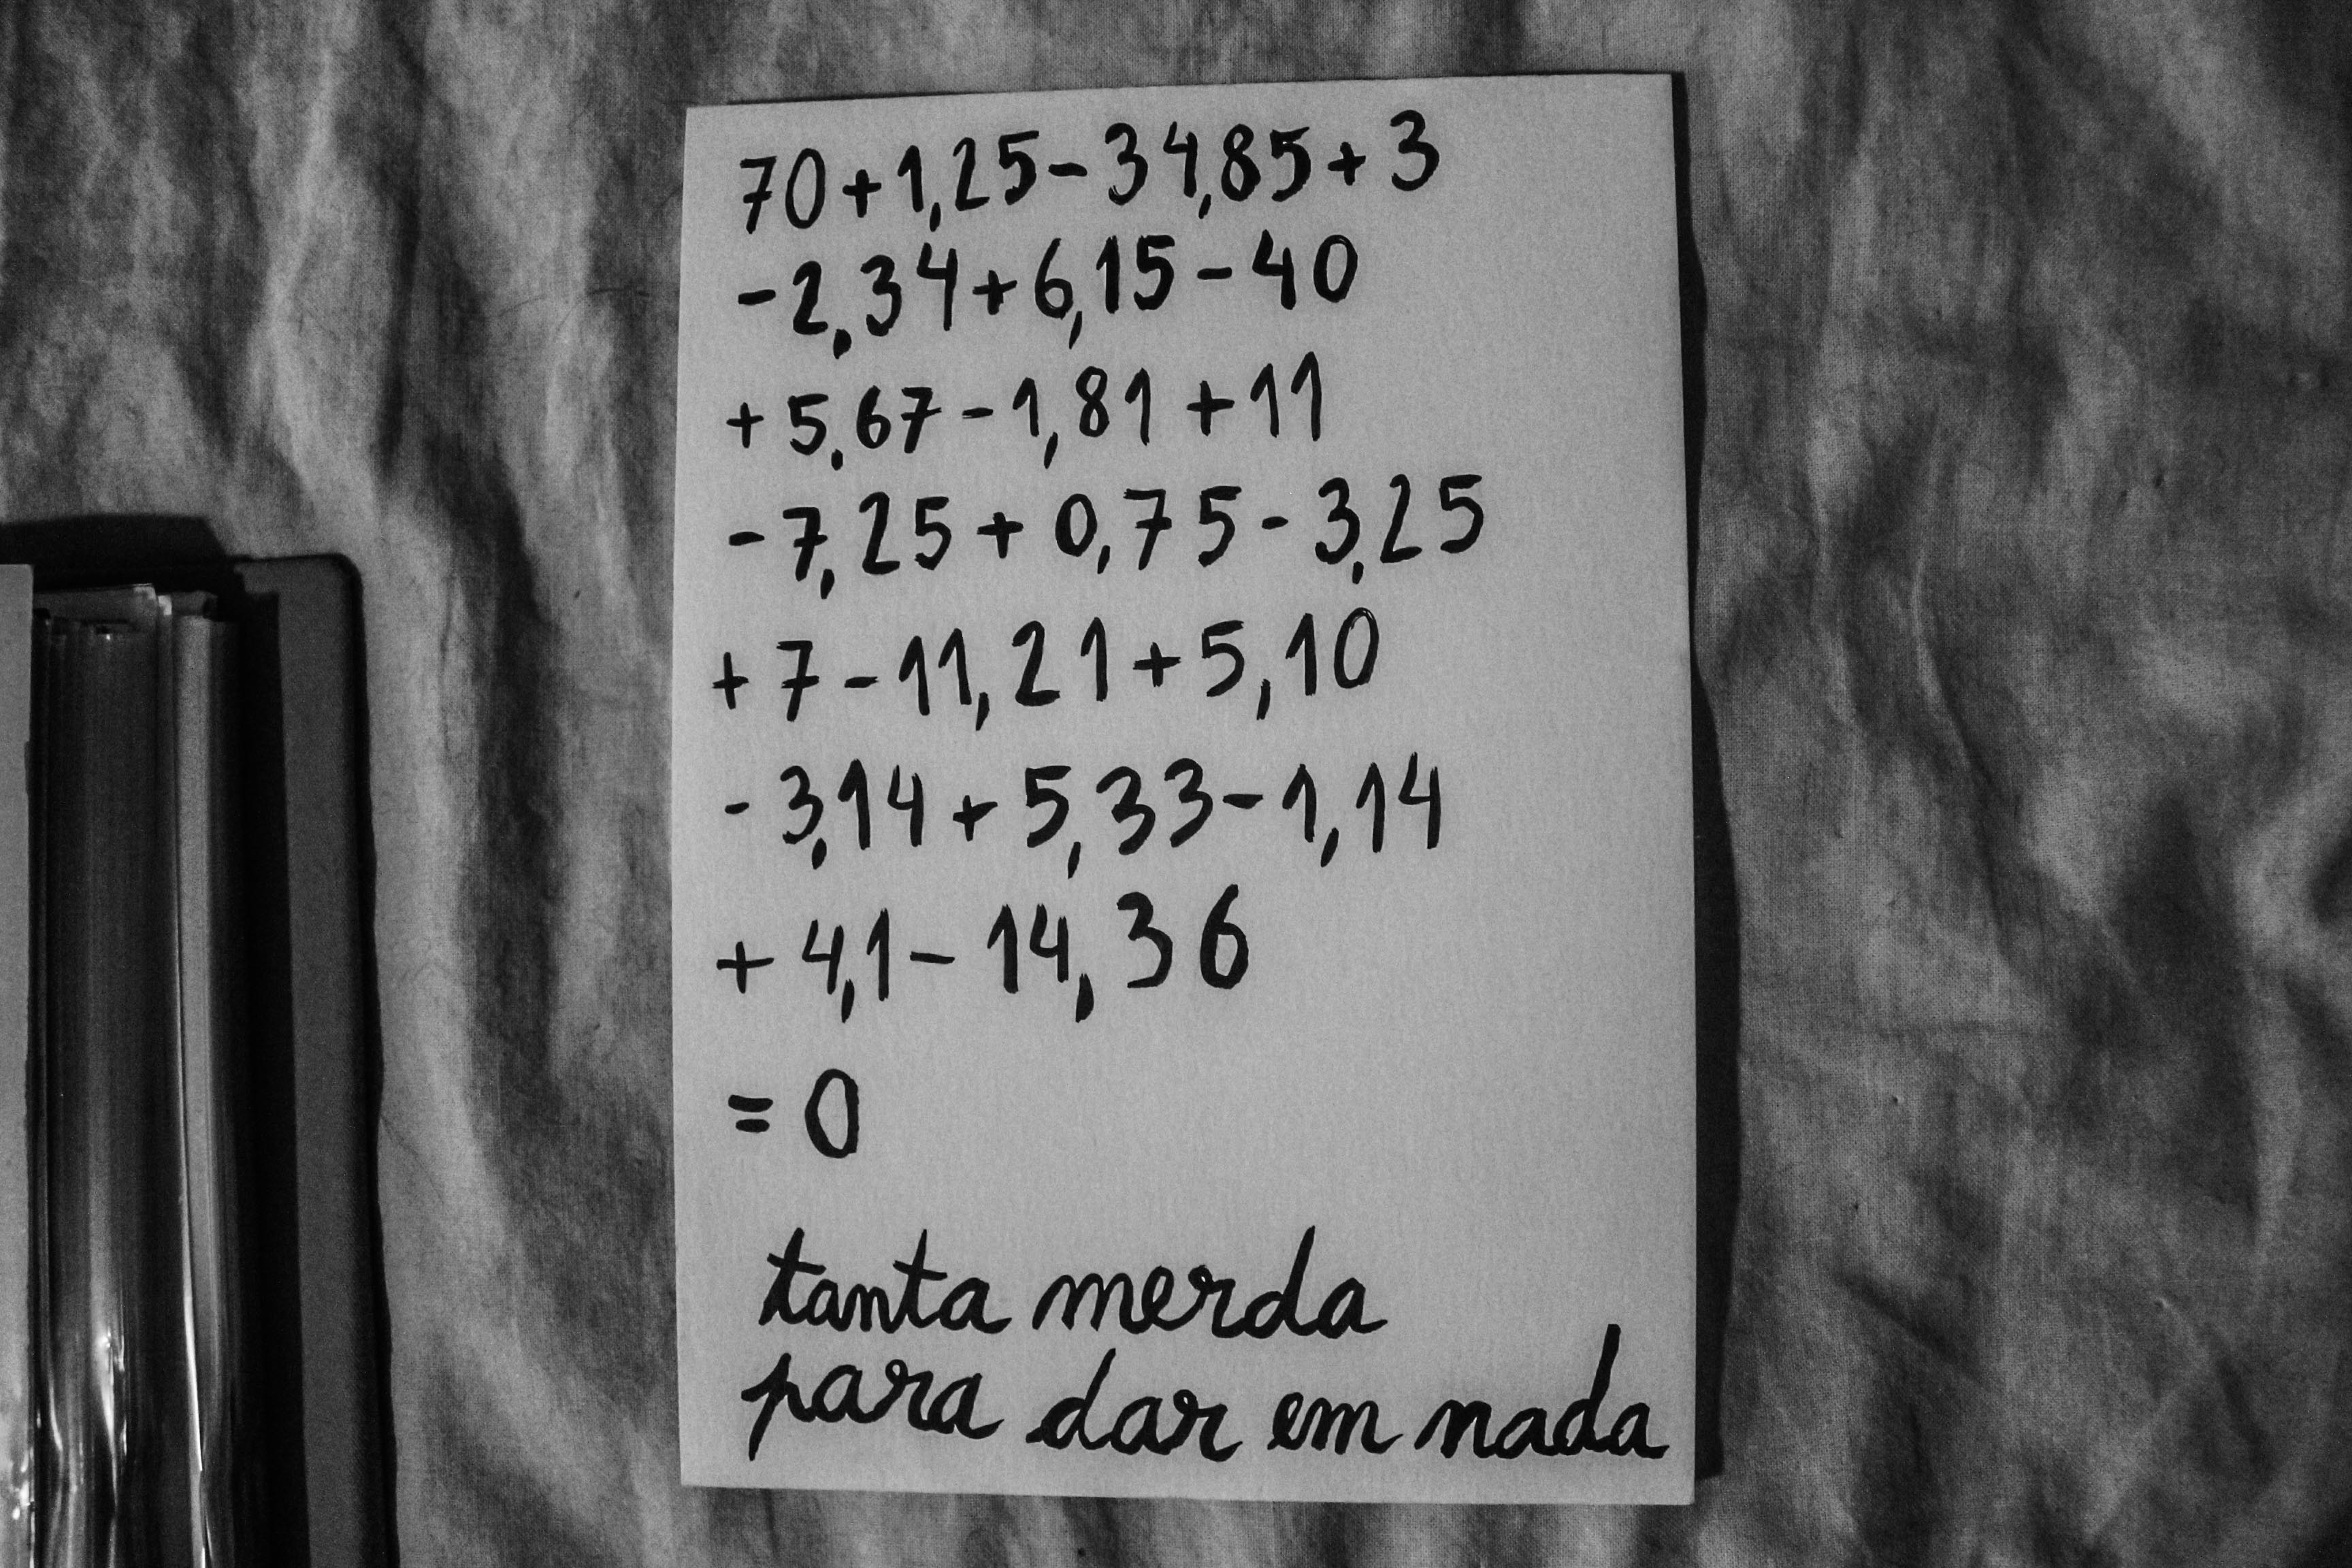 70+1,25-34,85+3
-2,34+6,15-40
+5,67-1,81+11
-7,25+0,75-3,25
+7-11,21+5,10
-3,14+5,33-1,14
+4,1-14,36
=0
tanta merda
para dar em nada